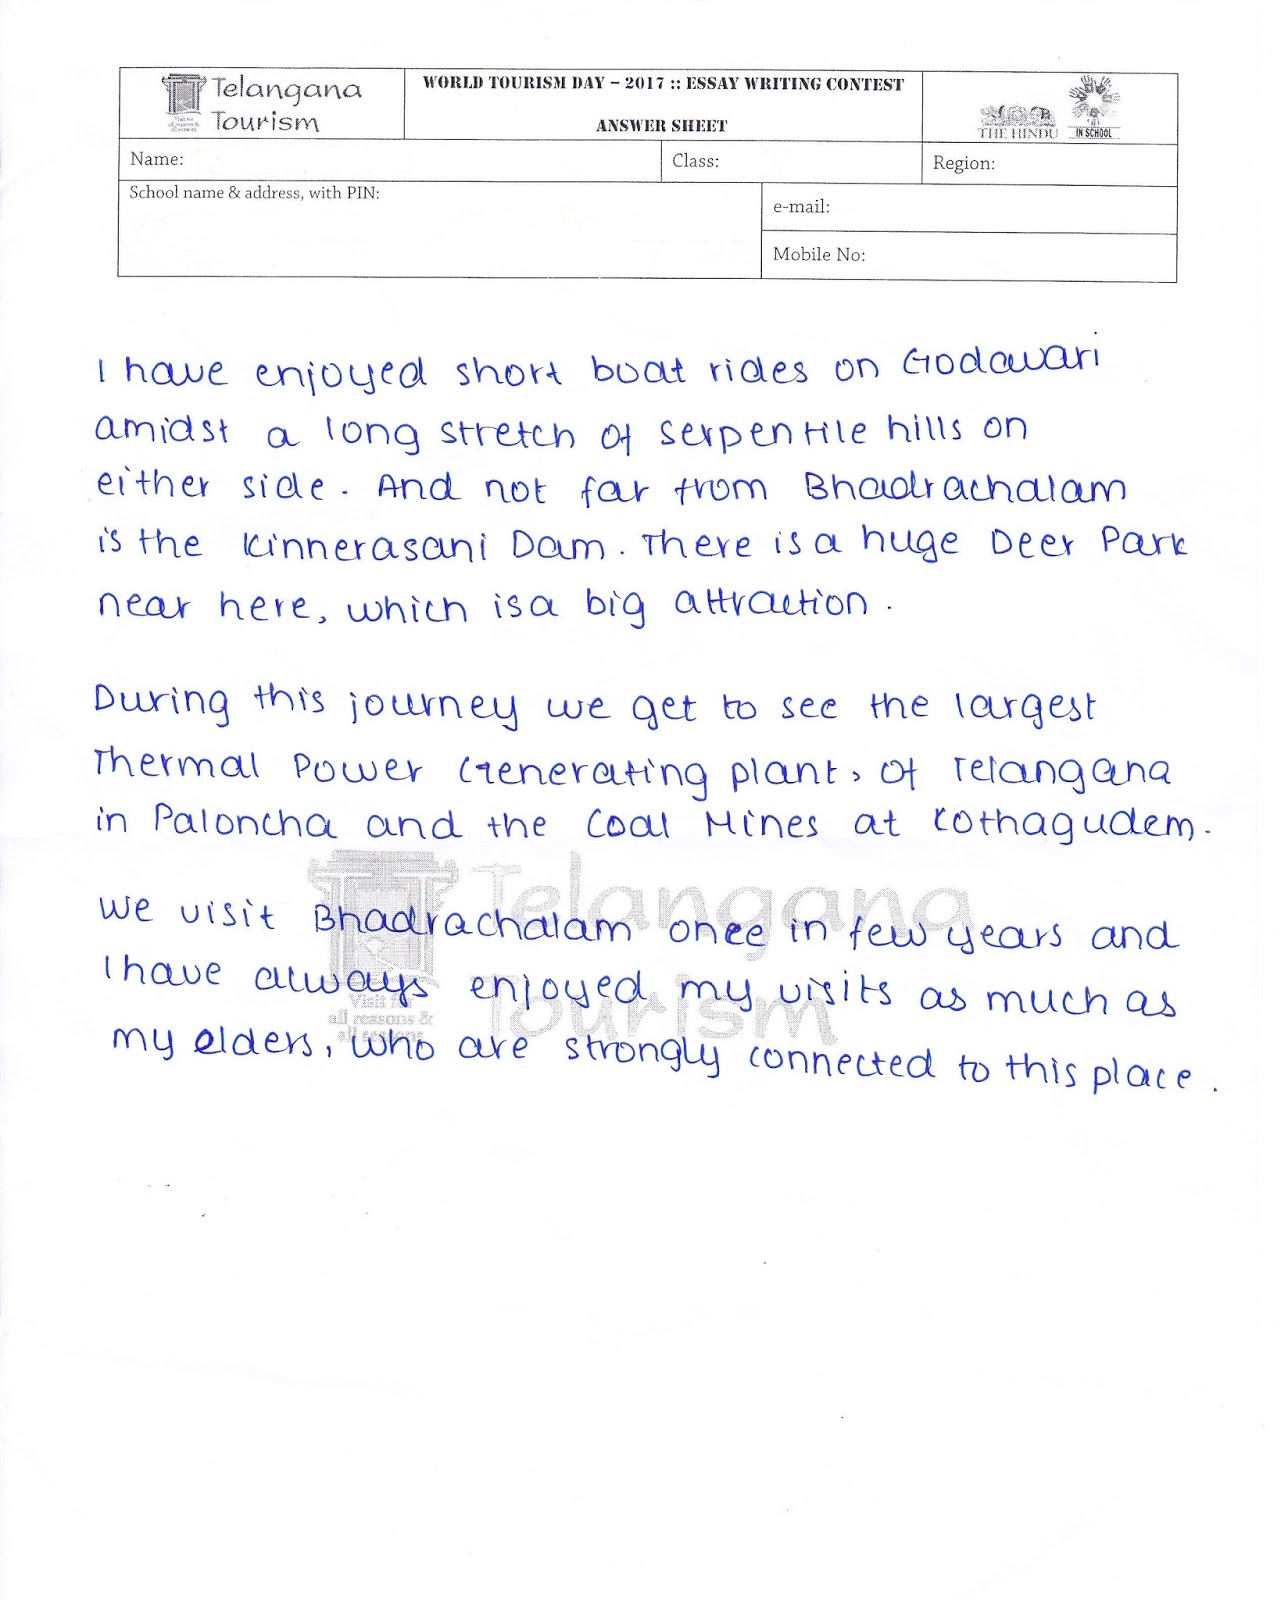 Telangana Tourism
Visit for all reasons & all seasons
WORLD TOURISM DAY – 2017 :: ESSAY WRITING CONTEST
ANSWER SHEET
THE HINDU IN SCHOOL
Name:
Class:
Region:
School name & address, with PIN:
e-mail:
Mobile No:
I have enjoyed short boat rides on Godavari
amidst a long stretch of serpentile hills on
either side. And not far from Bhadrachalam
is the Kinnerasani Dam. There is a huge Deer Park
near here, which is a big attraction.
During this journey we get to see the largest
Thermal Power Generating plant, of Telangana
in Paloncha and the Coal Mines at Kothagudem.
We visit Bhadrachalam once in few years and
I have always enjoyed my visits as much as
my elders, who are strongly connected to this place.
Telangana
Tourism
Visit for
all reasons &
all seasons